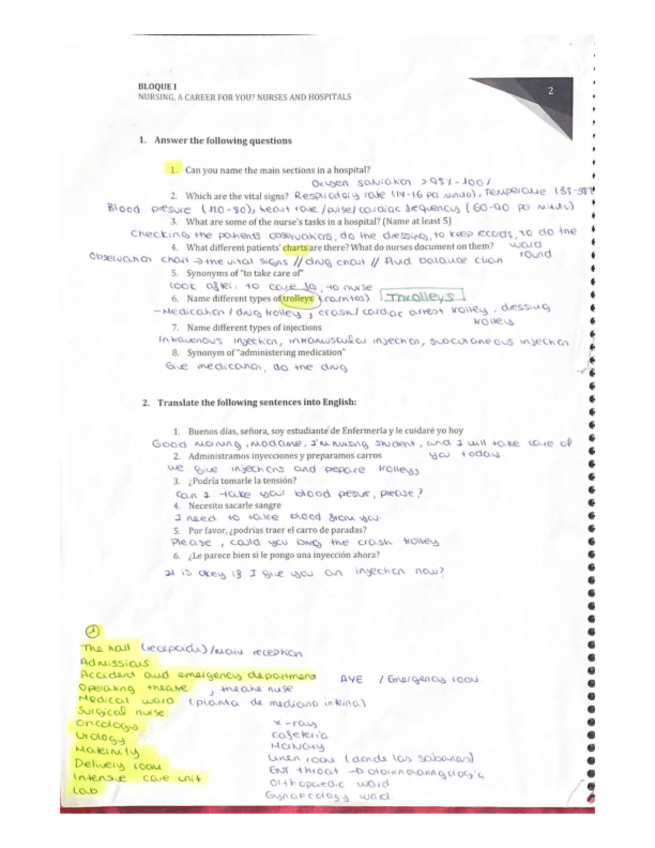 BLOQUE I
NURSING, A CAREER FOR YOU? NURSES AND HOSPITALS
2
1. Answer the following questions
1. Can you name the main sections in a hospital?
Oxygen saturation > 95%-100%
2. Which are the vital signs? Respiratory rate (14-16 por minuto), Temperature (35-
Blood presure (120-80), heart rate /pulse/ cardiac frequency (60-90 por minuto)
3. What are some of the nurse's tasks in a hospital? (Name at least 5)
Checking the patients observations, do the dressing, to keep records, to do the
ward round
4. What different patients' charts are there? What do nurses document on them?
Observation chart → the vital signs // drug chart // fluid balance chart
5. Synonyms of "to take care of"
look after, to care for, to nurse
6. Name different types of trolleys (carritos) Throlleys
- Medication / drug trolley, crash / cardiac arrest trolley, dressing
trolley
7. Name different types of injections
Intravenous injection, intramuscular injection, subcutaneous injection
8. Synonym of "administering medication"
Give medication, do the drug
2. Translate the following sentences into English:
1. Buenos días, señora, soy estudiante de Enfermería y le cuidaré yo hoy
Good morning, Madame, I'm nursing student, and I will take care of
you today.
2. Administramos inyecciones y preparamos carros
We give injections and prepare trolleys
3. ¿Podría tomarle la tensión?
Can I take your blood pesure, please?
4. Necesito sacarle sangre
I need to take blood from you
5. Por favor, ¿podrías traer el carro de paradas?
Please, could you bring the crash trolley
6. ¿Le parece bien si le pongo una inyección ahora?
It is okey if I give you an injection now?
The hall (recepción) / main reception
Admissions
Accident and emergency department AYE / Emergency room
Operating theatre, theatre nurse
Medical ward (planta de medicina interna)
Surgical nurse
Oncology x-rays
Urology cafetería
Maternity Mortuary
Delivery room Linen room (donde las sabanas)
Intensive care unit ENT throat → otorrinolaringología
Lab Orthopaedic ward
Gynaecology ward